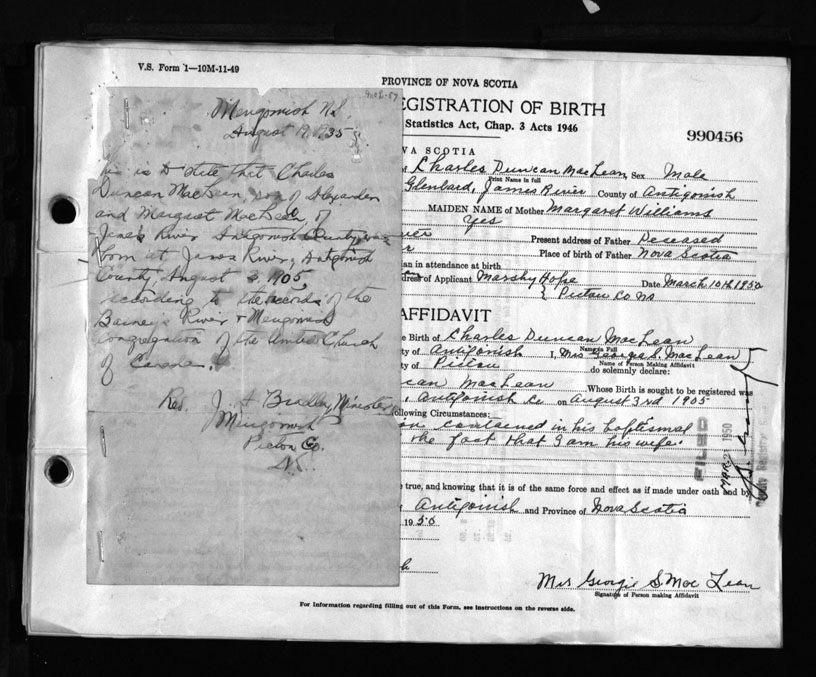 V.S. Form 1—10M-11-49
PROVINCE OF NOVA SCOTIA
EGISTRATION OF BIRTH
Statistics Act, Chap. 3 Acts 1946
990456
Merigomish N.S.
August 19, 1935
This is to state that Charles
Duncan MacLean, son of Alexander
and Margaret MacLean of
James River Antigonish County was
born at James River, Antigonish
County, August 3 1905
according to the records of the
Barney's River & Merigomish
Congregation of the United Church
of Canada.
Rev J. A. Bradley Minister
Merigomish
Pictou Co.
N.S.
OVA SCOTIA
Charles Duncan MacLean, Sex Male
Print Name in full
Glenbard, James River County of Antigonish
MAIDEN NAME of Mother Margaret Williams
Yes
Present address of Father Deceased
Place of birth of Father Nova Scotia
an in attendance at birth
of Applicant Marshy Hope Date March 10th 1950
Pictou Co NS
AFFIDAVIT
e Birth of Charles Duncan MacLean
Name in Full
ty of Antigonish I, Mrs Georgie S. MacLean
Name of Person Making Affidavit
ty of Pictou do solemnly declare:
can MacLean Whose Birth is sought to be registered was
, Antigonish Co on August 3rd 1905
ollowing Circumstances:
contained in his baptismal
the fact that I am his wife.
FILED
1950
e true, and knowing that it is of the same force and effect as if made under oath and by
Antigonish and Province of Nova Scotia
1950
Mrs Georgie S. MacLean
Signature of Person making Affidavit
For Information regarding filling out of this Form, see instructions on the reverse side.